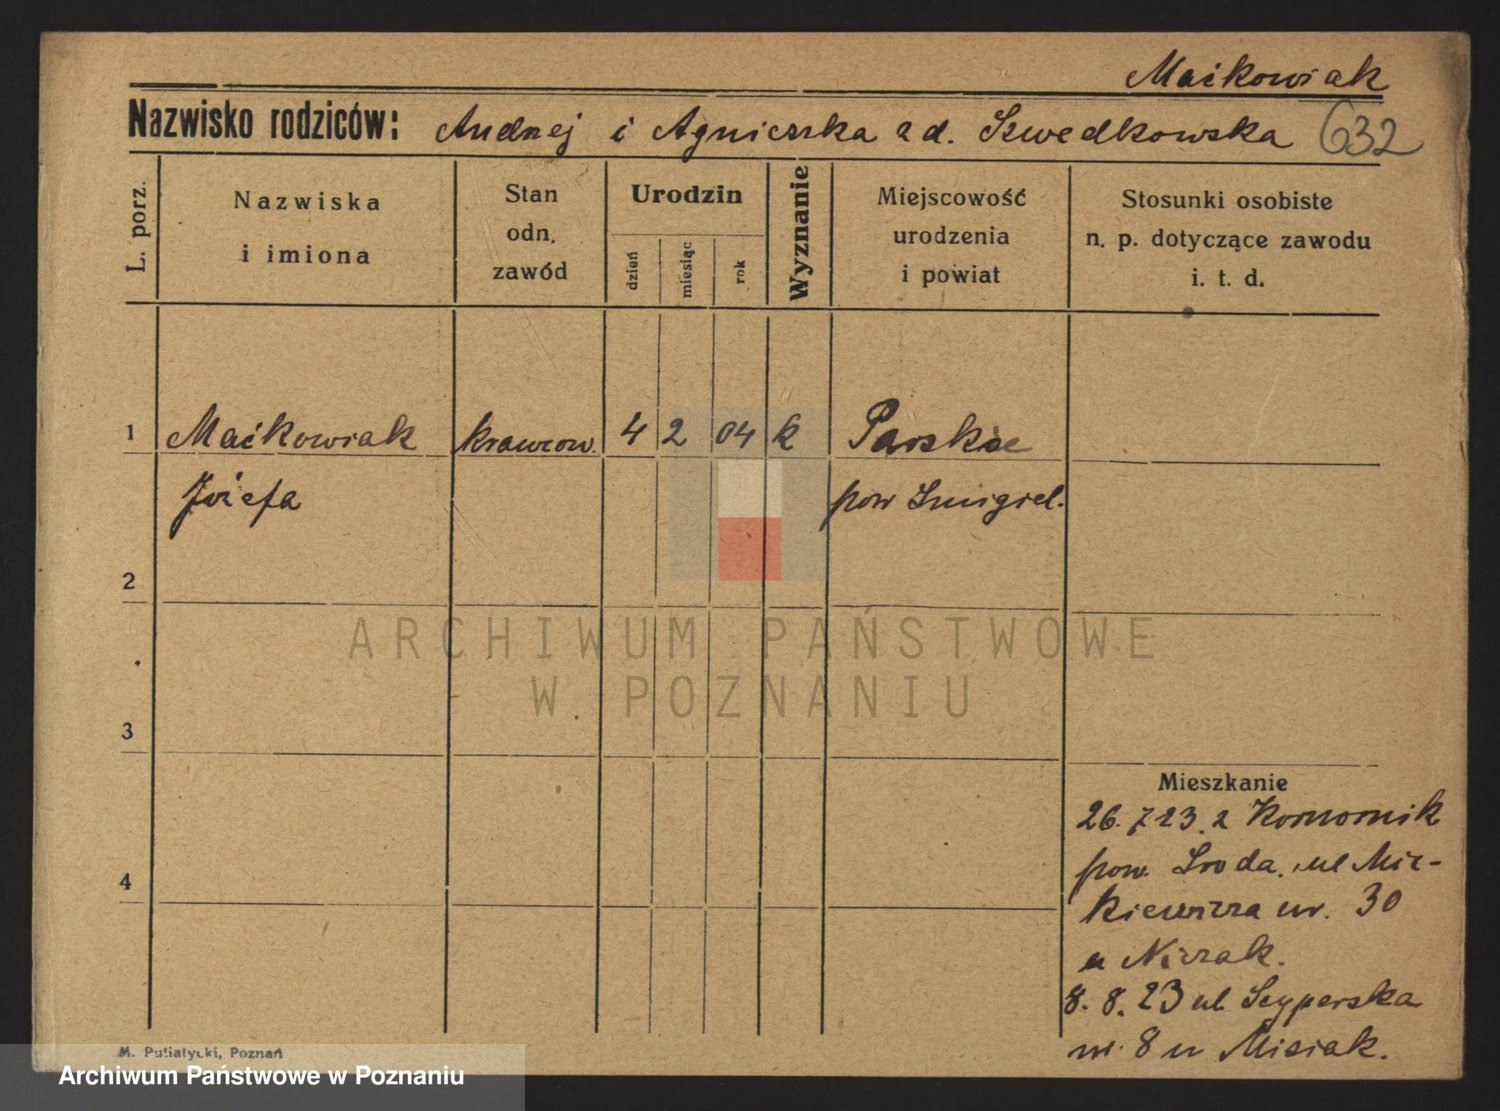 Maćkowiak
Nazwisko rodziców: Andrzej i Agnieszka z d. Szwedkowska 632
L. porz.
Nazwiska
i imiona
Stan
odn.
zawód
Urodzin
dzień
miesiąc
rok
Wyznanie
Miejscowość
urodzenia
i powiat
Stosunki osobiste
n. p. dotyczące zawodu
i. t. d.
1 Maćkowiak krawcow. 4 2 04 k Parskie
Józefa pow Śmigiel.
2
ARCHIWUM PAŃSTWOWE
W POZNANIU
3
Mieszkanie
26. 7 23. z Komornik
pow. Środa. ul Mic-
4
kiewicza nr. 30
u
8. 8. 23 ul. Szyperska
nr. 8 u Misiak.
M. Putiatycki, Poznań
Archiwum Państwowe w Poznaniu